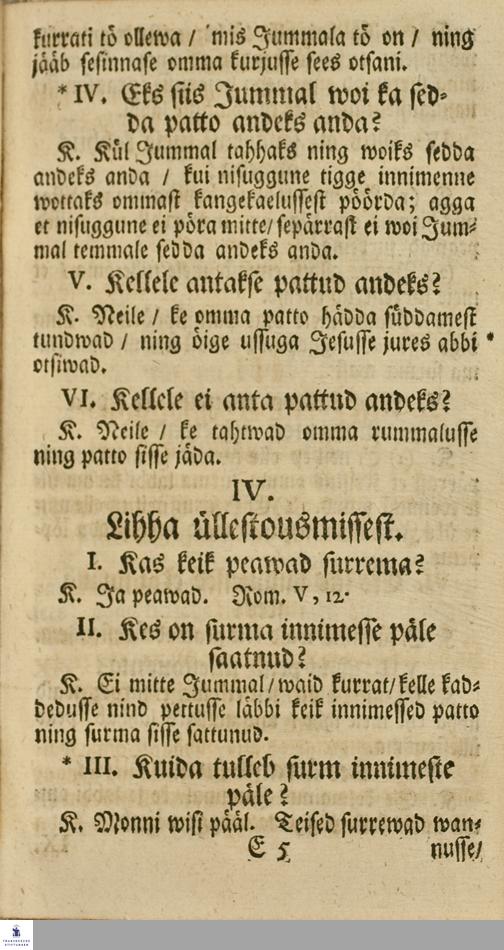 kurrati tö ollewa / mis Jummala tö on / ning
jääb sesinnase omma kurjusse sees otsani.
* IV. Eks siis Jummal woi ka sed-
da patto andeks anda?
K. Kül Jummal tahhaks ning woiks sedda
andeks anda / kui nisuggune tigge innimenne
wottaks ommast kangekaelussest pöörda; agga
et nisuggune ei pöra mitte/ sepärrast ei woi Jum-
mal temmale sedda andeks anda.
V. Kellele antakse pattud andeks?
K. Neile / ke omma patto hädda süddamest
tundwad / ning öige ussuga Jesusse jures abbi *
otsiwad.
VI. Kellele ei anta pattud andeks?
K. Neile / ke tahtwad omma rummalusse
ning patto sisse jäda.
IV.
Lihha üllestousmissest.
I. Kas keik peawad surrema?
K. Ja peawad. Rom. V, 12.
II. Kes on surma innimesse päle
saatnud?
K. Ei mitte Jummal/ waid kurrat/ kelle kad-
dedusse nind pettusse läbbi keik innimessed patto
ning surma sisse sattunud.
* III. Kuida tulleb surm innimeste
päle?
K. Monni wisi pääl. Teised surrewad wan-
E 5 nusse/